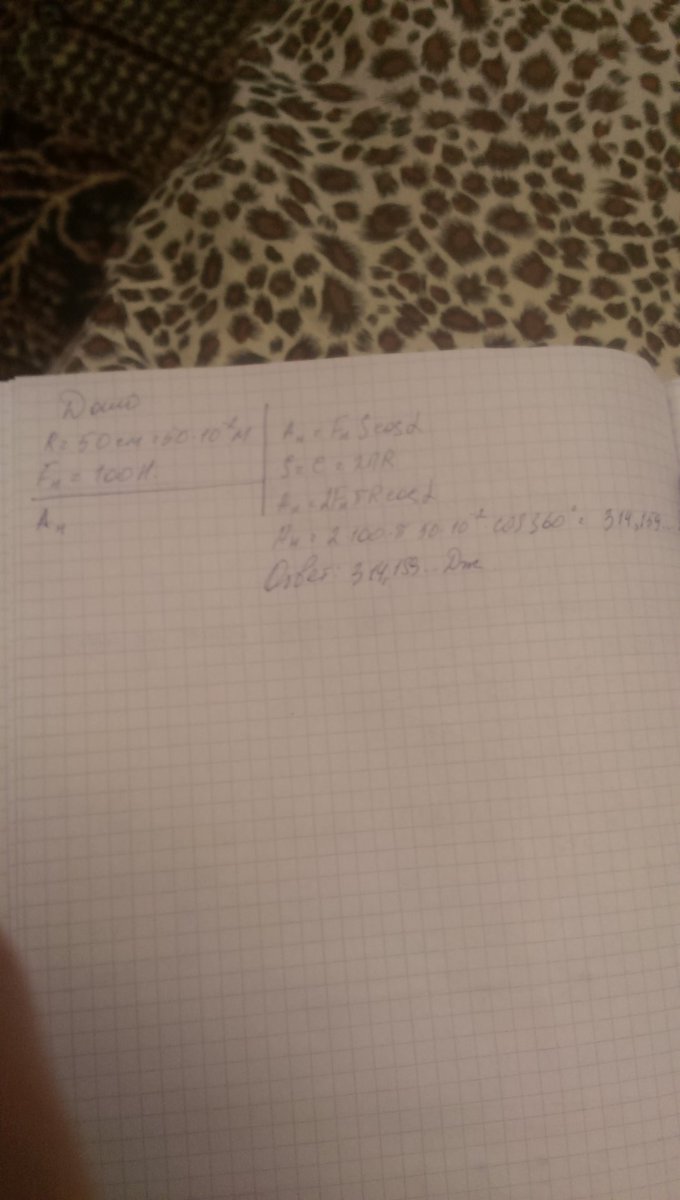 Дано
R = 50 см = 50·10⁻²м
Fₙ = 100 Н.
Aₙ
Aₙ = Fₙ S cosα
S = C = 2πR
Aₙ = 2FₙπR cosα
Aₙ = 2·100·π·50·10⁻² cos360° = 314,159...
Ответ: 314,159... Дж